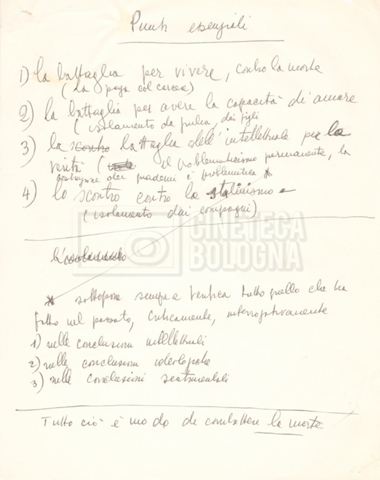 Punti essenziali
1) la battaglia per vivere, contro la morte
(la fuga dal carcere)
2) la battaglia per avere la capacità di amare
(isolamento da Julia, dai figli
3) la battaglia dell'intellettuale per la
verità ( il problematicismo permanente, la
dei è problematica *
4) lo scontro contro lo stalinismo
(isolamento dai compagni)
CINETECA
BOLOGNA
L'isolamento
* sottopone sempre a verifica tutto quello che ha
fatto nel passato, criticamente, interrogativamente
1) nelle conclusioni intellettuali
2) nelle conclusioni ideologiche
3) nelle conclusioni sentimentali
Tutto ciò è modo di combattere la morte